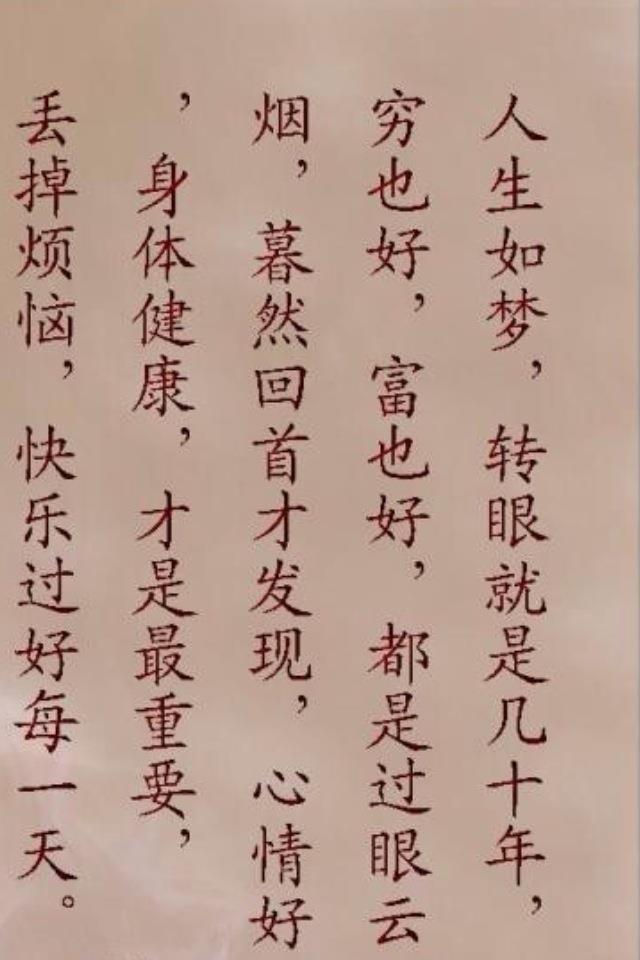 人生如梦，转眼就是几十年，
穷也好，富也好，都是过眼云
烟，暮然回首才发现，心情好
，身体健康，才是最重要，
丢掉烦恼，快乐过好每一天。